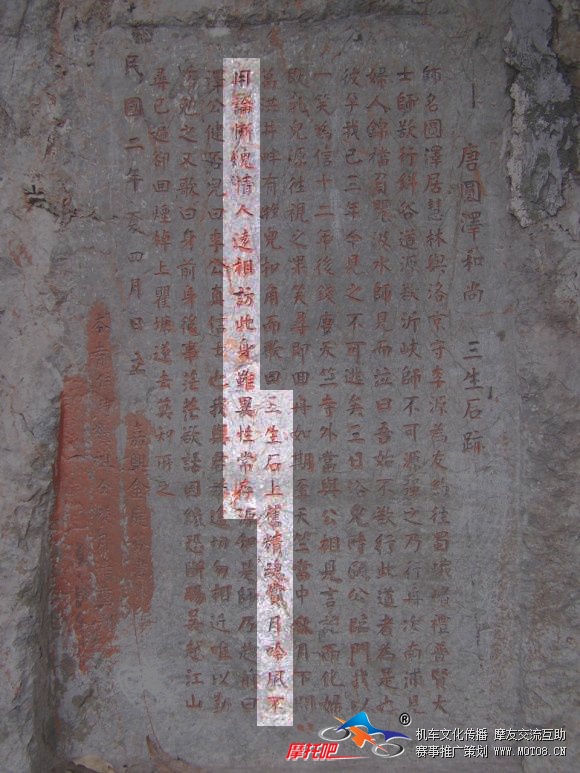 唐圓澤和尚 三生石跡
師名圓澤居慧林與洛京守李源為友往蜀峨嵋禮普賢大
士師欲行斜谷道源欲沂峽師不可源強之乃行舟次南浦見
婦人錦襠負甖汲水師見而泣曰吾始不欲行此道者為是也
彼孕我已三年今見之不可逃矣三日浴兒時顧公臨門我以
一笑為信十二年後錢唐天竺寺外當與公相見言訖而化婦
既乳兒源往視之果笑尋即回舟如期至天竺當中秋月下聞
葛洪井畔有牧兒扣角而歌曰三生石上舊精魂賞月吟風不
用論慚愧情人遠相訪此身雖異性常存源知是師乃趨前曰
澤公健否兒曰李公真信士也我與君殊途切勿相近唯以勤
修勉之又歌曰身前身後事茫茫欲話因緣恐斷腸吳越江山
尋已遍卻回煙棹上瞿塘遂去莫知所之
民國二年夏四月日立
嘉興金庭
摩托吧®
机车文化传播 摩友交流互助
赛事推广策划 WWW.MOTO8.CN